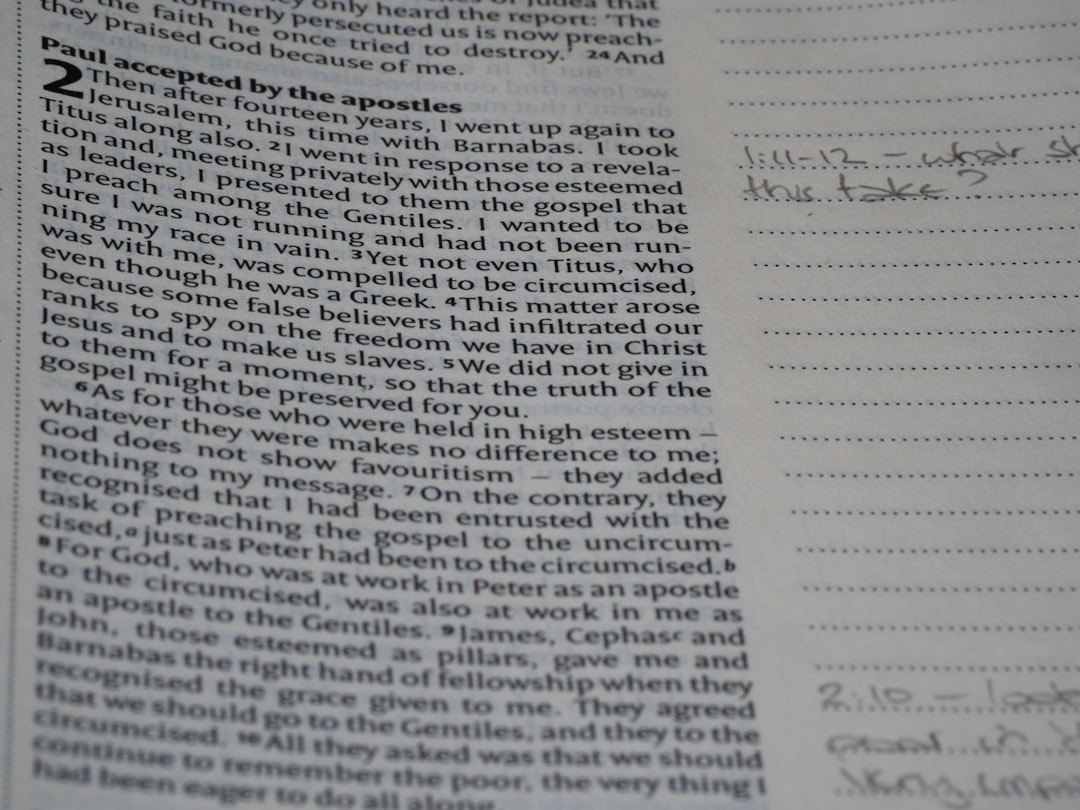 only heard the report: 'The
formerly persecuted us is now preach-
the faith he once tried to destroy.' 24 And
they praised God because of me.
Paul accepted by the apostles
2 Then after fourteen years, I went up again to
Jerusalem, this time with Barnabas. I took
Titus along also. 2 I went in response to a revela-
tion and, meeting privately with those esteemed
as leaders, I presented to them the gospel that
I preach among the Gentiles. I wanted to be
sure I was not running and had not been run-
ning my race in vain. 3 Yet not even Titus, who
was with me, was compelled to be circumcised,
even though he was a Greek. 4 This matter arose
because some false believers had infiltrated our
ranks to spy on the freedom we have in Christ
Jesus and to make us slaves. 5 We did not give in
to them for a moment, so that the truth of the
gospel might be preserved for you.
6 As for those who were held in high esteem –
whatever they were makes no difference to me;
God does not show favouritism – they added
nothing to my message. 7 On the contrary, they
recognised that I had been entrusted with the
task of preaching the gospel to the uncircum-
cised,a just as Peter had been to the circumcised.b
8 For God, who was at work in Peter as an apostle
to the circumcised, was also at work in me as
an apostle to the Gentiles. 9 James, Cephasc and
John, those esteemed as pillars, gave me and
Barnabas the right hand of fellowship when they
recognised the grace given to me. They agreed
that we should go to the Gentiles, and they to the
circumcised. 10 All they asked was that we should
continue to remember the poor, the very thing I
had been eager to do all along.
1:11-12 – what sh
this take?
2:10 –